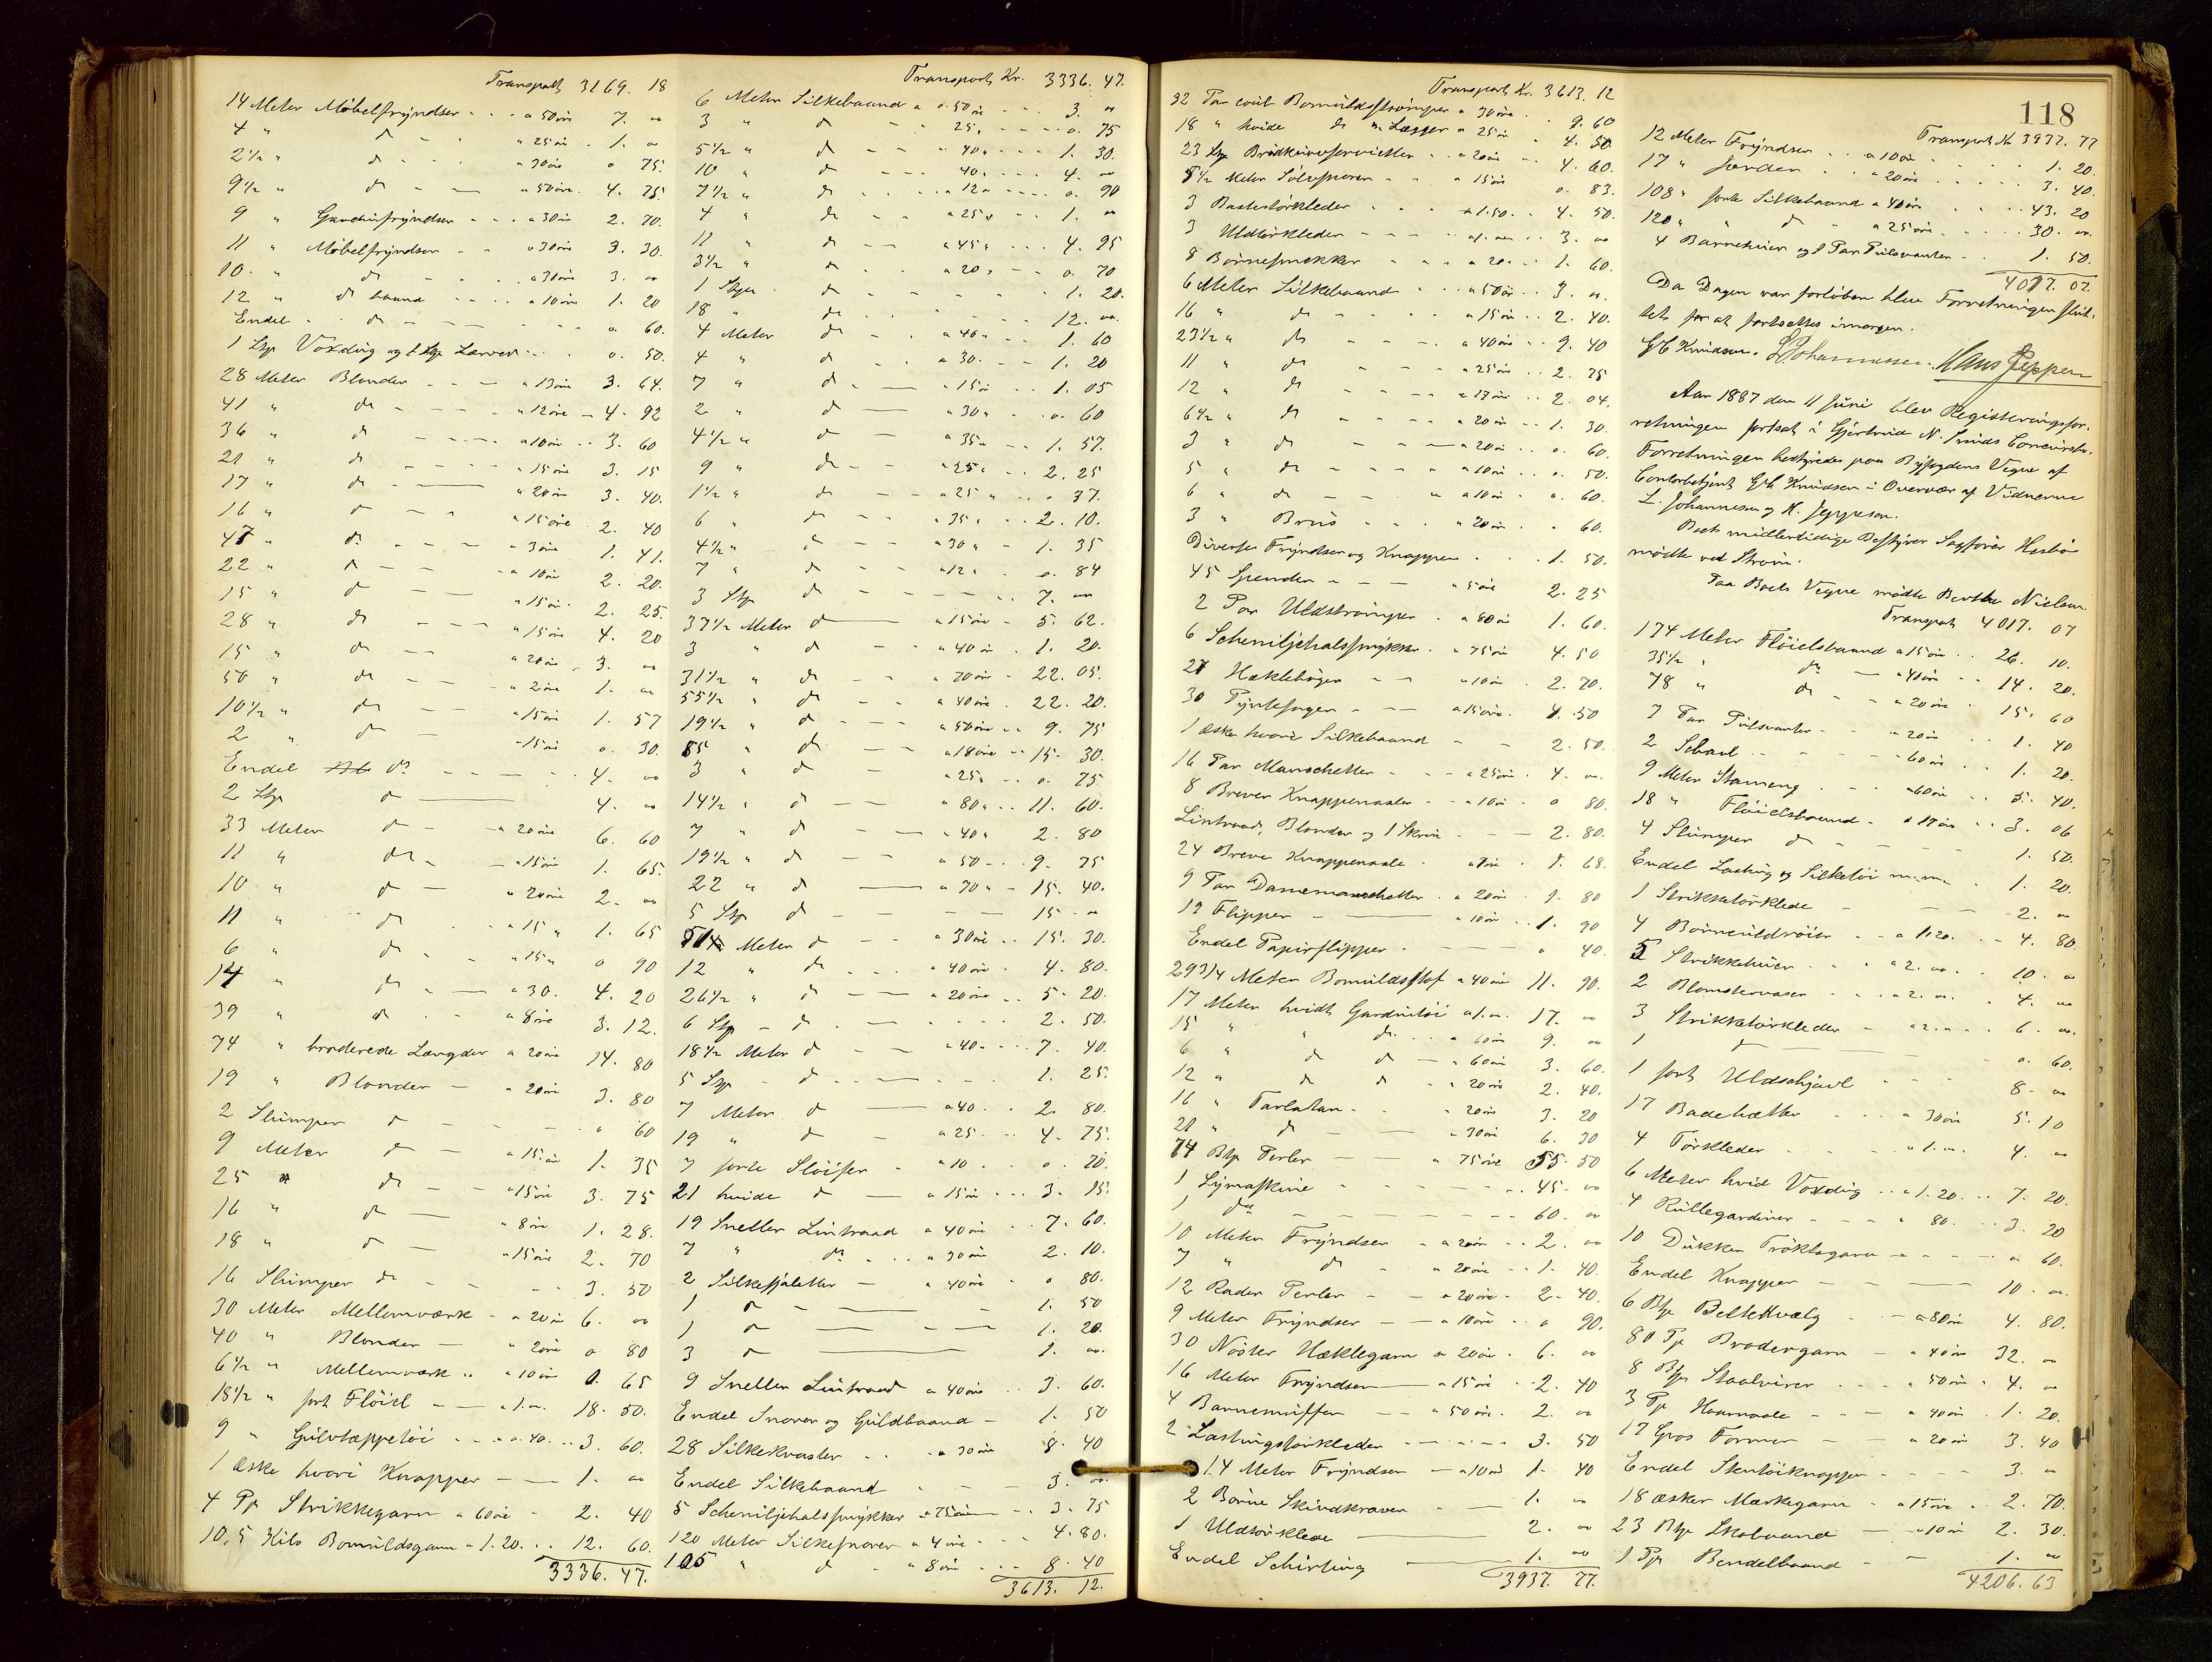 Transport 3169. 18
14 Meter Möbelfryndser - - - a 50 øre 7. "
4 " do - - " 25 øre - 1. "
2 1/2 " do - - - " 30 øre 0 75.
9 1/2 " do - - " 50 øre. 4. 75.
9 " Gardinfryndser - - - a 30 øre 2. 70.
11 " Möbelfryndser - - a 30 øre 3. 30.
10. " do - - a 30 øre 3. "
12 " do baand - - - a 10 øre 1. 20
Endel - do - - - - - 0. 60.
1 Stp Voxdug og 1 Stp Lærred - - 0. 50.
28 Meter Blonder - - - a 13 øre 3. 64.
41 " do - - - - " 12 øre - 4. 92
36 " do - - - - a 10 øre - - 3. 60
21 " do - - - - " 15 øre 3. 15
17 " do - - " 20 øre 3. 40.
16 " do - - - " 15 øre 2. 40
47 " do - - - " 3 øre 1. 41.
22 " do - - - a 10 øre 2. 20.
15 " do - - - " 15 øre 2. 25.
28 " do - - - " 15 øre 4. 20
15 " do - - a 20 øre - 3. "
50 " do - - - " 2 øre 1. "
10 1/2 " do - - " 15 øre 1. 57
2 " do - - " 15 øre 0. 30.
Endel do - - - - 4. "
2 Stp do - - 4. "
33 Meter do - - a 20 øre 6. 60
11 " do - - a 15 øre 1. 65.
10 " do - " 20 øre 2. "
11 " do - - a 15 " 1. 65
6 " do - - " 15 " 0 90
14 " do - - a 30. 4. 20
39 " do - - a 8 øre 3. 12.
74 " broderede Længder a 20 øre 14. 80
19 " Blonder - a 20 øre 3. 80
2 Slumper do - - - - " 60
9 Meter do - a 15 øre 1. 35
25 " do - - " 15 øre 3. 75
16 " do - " 8 øre 1. 28.
18 " do - " 15 øre 2. 70
16 Slumper do - - - - 3. 50
30 Meter Mellemværk - a 20 øre 6. "
40 " Blonder - " 2 øre 0 80
6 1/2 " Mellemværk " a 10 øre 0. 65
18 1/2 " sort Flöiel - - a 1. " 18. 50.
9 " Gulvtæppetöi - - a " 40. - - 3. 60.
1 æske hvori Knapper - - 1. "
4 Pp Strikkegarn a 60 øre - 2. 40
10,5 Kilo Bomuldsgarn a 1. 20. - - 12. 60.
3336. 47.
Transport Kr. 3336. 47.
6 Meter Silkebaand a 0. 50 øre - - 3. "
3 " do - - 25 " - - - 0. 75
5 1/2 " do - - " 40 " - - - 1. 30.
10 " do - - - 40 " - - - 4. "
7 1/2 " do - - - a 12 " - - - 0. 90
4 " do - - " 25 " - - 1. "
11 " do - - " 45 " - - - 4. 95
3 1/2 " do - - a 20 " - - 0. 70
1 Stpr do - - - - - 1. 20.
18 " do - - - - - 12. "
4 Meter do - - " 40 " - - 1. 60
4 " do - - " 30 " - - 1. 20
7 " do - " 15 øre - - 1. 05
2 " do - " 30 " - - 0. 60
4 1/2 " do - a 35 " - - 1. 57.
9 " do - - " 25 " - - 2. 25
1 1/2 " do - - " 25 " - - 0 37.
6 " do - - " 35 " - - 2. 10.
4 1/2 " do - - " 30 " - 1. 35
7 " do - - " 12 " - - 0. 84
3 Stp do - - - - - 7. "
37 1/2 Meter do - " 15 øre - 5. 62.
3 " do - - " 40 øre - 1. 20.
31 1/2 " do - - " 70 øre - 22. 05.
55 1/2 " do - - " 40 øre. 22. 20.
19 1/2 " do - - " 50 øre - - 9. 75
85 " do - - " 18 øre - - 15. 30.
3 " do - " 25 " - - 0. 75.
14 1/2 " do - - " 80 " - - 11. 60.
7 " do - - " 40 " 2. 80
19 1/2 " do - - " 50 - - 9. 75
22 " do - " 70 " - 15. 40.
5 Stp do - - - - 15. "
51 Meter do - - " 30 øre - - 15. 30.
12 " do - - - " 40 øre. 4. 80.
26 1/2 " do - - a 20 øre - - 5. 20.
6 Stp - do - - - - - 2. 50.
18 1/2 Meter do - - " 40 - - - 7. 40.
5 Stp - do - - - - - 1. 25.
7 Meter do - a 40. - - 2. 80.
19 " do - a 25. - - 4. 75.
7 sorte Slöifer - " 10 - - 0. 70.
21 hvide do - a 15 øre - - - 3. 15.
19 Sneller Lintraad a 40 øre - - 7. 60.
7 " do. - - a 30 øre 2. 10.
2 Silkesjaletter - a 40 øre - 0 80.
1 do - - - 1. 50
1 do - - - 1. 20.
3 do - 1. "
9 Sneller Lintraad a 40 øre - - 3. 60.
Endel Snorer og Guldbaand - 1. 50
28 Silkekvaster - - a 30 øre 8. 40
Endel Silkebaand - - - 3. "
5 Scheniljehalssmykker a 75 øre - - 3. 75
120 Meter Silkesnorer a 4 øre - - 4. 80.
105 " do - " 8 øre - - 8. 40
3613. 12.
118
Transport Kr. 3613. 12
32 Par coul Bomuldsströmper a 30 øre - - 9. 60
18 " hvide do m. Lægger a 25 øre - 4. 50
23 Stp Brödkurvservietter - - a 20 øre - - 4. 60.
5 1/2 Meter Sölvsnorer - - a 15 øre 0. 83.
3 Bastetörklæder - - - a 1. 50. - - 4. 50.
3 Uldtörklæder - - - a 1. " - - 3. "
8 Börnesmekker - - - a 20 - - 1. 60.
6 Meter Silkebaand - - a 50 øre - - 3. "
16 " do - - - a 15 øre - - 2. 40.
23 1/2 " do - - - a 40 øre - - 9. 40
11 " do - - - a 25 øre - - 2. 75
12 " do - - - a 17 øre - - 2. 04.
6 1/2 " do - - - a 20 øre - - 1. 30.
3 " do - - a 20 øre - - 0. 60.
5 " do - - - a 10 øre - - 0. 50.
6 " do - - " a 10 øre - 0. 60.
3 " Brus - - - " 20 øre - " 60.
Diverse Fryndser og Knapper - - - 1. 50.
45 Spender - - - a 5 øre 2. 25
2 Par Uldströmper - a 80 øre 1. 60.
6 Scheniljehalssmykker - " 75 øre 4. 50
27 Hæklebøger - - " 10 øre - 2. 70.
30 Pyntesager - - a 15 øre. 4. 50
1 æske hvori Silkebaand - - 2. 50.
16 Par Manschetter - - - a 25 øre - 4. "
8 Brever Knappenaaler - - a 10 øre - 0 80.
Lintraad, Blonder og 1 Skrin - - - 2. 80.
24 Breve Knappenaale - a 7 øre - 1. 68.
9 Par Damemanschetter - a 20 øre - 1. 80
19 Flipper - a 10 øre - - 1. 90
Endel Papirflipper - - - 0 40.
29 3/4 Meter Bomuldsstof a 40 øre 11. 90.
17 Meter hvidt Gardintöi a 1. " 17. "
15 " " do. - - a 60 øre 9. "
6 " do do - a 60 øre 3. 60.
12 " do do - a 20 øre 2. 40.
16 " Tarlatan - - - a 20 øre 3. 20
21 " do - - " 30 øre 6. 30
74 Btp Perler - - a 75 øre 55. 50
1 Symaskine - - - - - 45. "
1 do - - - - - 60. "
10 Meter Fryndser - a 20 øre - - 2. "
7 " do - a 20 øre - - 1. 40.
12 Rader Perler - - a 20 øre - 2. 40.
9 Meter Fryndser - - a 10 øre - - 0 90.
30 Nöster Hæklegarn a 20 øre - 6. "
16 Meter Fryndser - a 15 øre - - 2. 40
4 Barnemuffer - - a 50 øre. 2. "
2 Lastingstörklæder - - - - 3. 50
14 Meter Fryndser - a 10 øre 1. 40
2 Börne Skindkraver - - 1. "
1 Uldtörklæde - 2. "
Endel Schirting - 1. "
3937. 77.
Transport Kr 3937. 77
12 Meter Fryndser - - a 10 øre - - - 1. 20.
17 " Jorden - - a 20 øre - - - 3. 40.
108 " sorte Silkebaand a 40 øre - - - 43. 20
120 " do - a 25 øre - - - 30. "
4 Barnehuer og 1 Par Pulsvanter - - 1. 50.
4017. 07.
Da Dagen var forløben blev Forretningen slut-
tet for at fortsættes imorgen.
G E Knudsen. L Johannessen. Hans Jeppesen
Aar 1887 den 11 Juni blev Registreringsfor-
retningen fortsat i Gjertrud N. Smids Concursbo.
Forretningen bestyredes paa Byfogdens Vegne af
Contorbetjent G E Knudsen i Overvær af Vidnerne
L. Johannesen og H. Jeppesen.
Boets midlertidige Bestyrer Sagfører Hesbö
mödte ved Ström.
Paa Boets Vegne mödte Berthe Nielsen.
Transport 4017. 07
174 Meter Flöielsbaand a 15 øre - - 26. 10.
35 1/2 " do - a 40 øre - - 14. 20.
78 " do - - a 20 øre - 15. 60
7 Par Pulsvanter - - " 20 øre - 1. 40
2 Schaul - - - - " 60 øre - - 1. 20.
9 Meter Stameng - - - a 60 øre - - 5. 40.
18 " Flöielsbaand - a 17 øre - - 3. 06
4 Slumper do - - - - 1. 50.
Endel Lasting og Silketöi m.m. - 1. 20.
1 Strikketörklæde - - - 2. "
4 Börneuldtröier - - a 1. 20. - - 4. 80.
5 Strikkehuer - - - a 2. " - - 10. "
2 Blomstervaser - - - a 2. " - 4. "
3 Strikketörklæder - a 2. " - - 6. "
1 do - - 0. 60.
1 sort Uldschjavl - - - 8. "
17 Badehætter - - - a 30 øre 5. 10
4 Törklæder - - - - a 1. " - 4. "
6 Meter hvid Voxdug - - a 1. 20. - - 7. 20.
4 Rullegardiner - - - a 80. - - 3. 20
10 Dukker Tröktegarn - - - 0 60.
Endel Knapper - - - 10. "
6 Btp Beltekvalg - - a 80 øre 4. 80.
80 Pp Brodergarn - a 40 øre 32. "
8 Btp Staalvirer - - - a 50 øre - 4. "
3 Pp Haarnaale - - - a 40 øre - 1. 20.
17 Gros Former - - a 20 øre 3. 40
Endel Stentöiknapper - - - 3. "
18 æsker Mærkegarn - a 15 øre - 2. 70.
23 Btp Skobaand - " 10 øre 2. 30.
1 Pp Bendelbaand - - 1. "
4206. 63